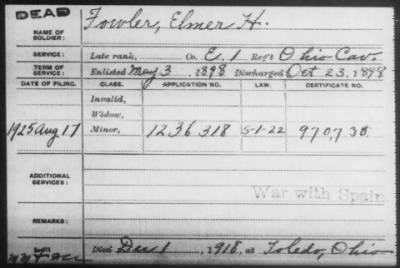 DEAD
NAME OF SOLDIER: Fowler, Elmer H.
SERVICE: Late rank, Co. E, 1 Reg't Ohio Cav.
TERM OF SERVICE: Enlisted May 3, 1898 Discharged Oct 23, 1898
DATE OF FILING. CLASS. APPLICATION NO. LAW. CERTIFICATE NO.
Invalid,
Widow,
1925 Aug 17 Minor, 1236318 5-1-22 970,730
ADDITIONAL SERVICES:
War with Spain
REMARKS:
Died Dec 1, 1918, at Toledo, Ohio